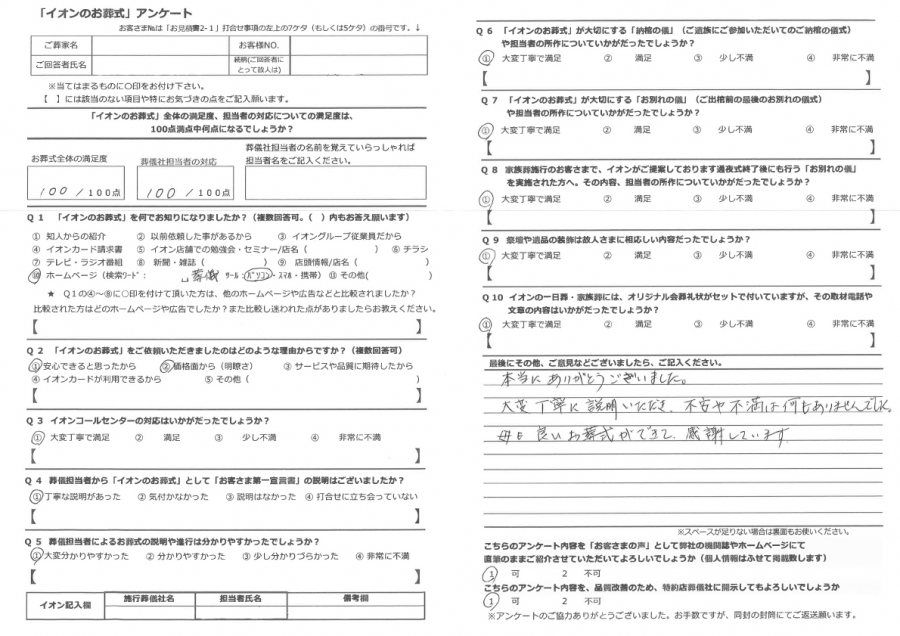 「イオンのお葬式」アンケート
お客さま№は「お見積書2-1」打合せ事項の左上の7ケタ（もしくは5ケタ）の番号です。↓
ご葬家名 お客様NO.
ご回答者氏名 続柄(ご回答者にとって故人は)
※当てはまるものに〇印をお付け下さい。
【　】には該当のない項目や特にお気づきの点をご記入願います。
「イオンのお葬式」全体の満足度、担当者の対応についての満足度は、
100点満点中何点になるでしょうか？
お葬式全体の満足度 葬儀社担当者の対応 葬儀社担当者の名前を覚えていらっしゃれば
担当者名をご記入ください。
100 / 100点 100 / 100点
Q１　「イオンのお葬式」を何でお知りになりましたか？（複数回答可。（　）内もお答え願います）
① 知人からの紹介 ② 以前依頼した事があるから ③ イオングループ従業員だから
④ イオンカード請求書 ⑤ イオン店舗での勉強会・セミナー/店名（　） ⑥ チラシ
⑦ テレビ・ラジオ番組 ⑧ 新聞・雑誌（　） ⑨ 店頭情報/店名（　）
⑩ ホームページ（検索ワード： 葬儀 ツール：パソコン・スマホ・携帯）⑪ その他（　）
★ Ｑ1の④～⑧に〇印を付けて頂いた方は、他のホームページや広告などと比較されましたか？
比較された方はどのホームページや広告でしたか？また比較し迷われた点がありましたらお教えください。
【　】
Q２　「イオンのお葬式」をご依頼いただきましたのはどのような理由からですか？（複数回答可）
①安心できると思ったから ②価格面から（明瞭さ） ③ サービスや品質に期待したから
④ イオンカードが利用できるから ⑤ その他（　）
【　】
Q３　イオンコールセンターの対応はいかがだったでしょうか？
① 大変丁寧で満足 ② 満足 ③ 少し不満 ④ 非常に不満
【　】
Q４　葬儀担当者から「イオンのお葬式」として「お客さま第一宣言書」の説明はございましたか？
①丁寧な説明があった ② 気付かなかった ③ 説明はなかった ④ 打合せに立ち会っていない
【　】
Q５　葬儀担当者によるお葬式の説明や進行は分かりやすかったでしょうか？
①大変分かりやすかった ② 分かりやすかった ③ 少し分かりづらかった ④ 非常に不満
【　】
イオン記入欄 施行葬儀社名 担当者氏名 備考欄
Q６　「イオンのお葬式」が大切にする「納棺の儀」（ご遺族にご参加いただいてのご納棺の儀式）
や担当者の所作についていかがだったでしょうか？
① 大変丁寧で満足 ② 満足 ③ 少し不満 ④ 非常に不満
【　】
Q７　「イオンのお葬式」が大切にする「お別れの儀」（ご出棺前の最後のお別れの儀式）
や担当者の所作についていかがだったでしょうか？
① 大変丁寧で満足 ② 満足 ③ 少し不満 ④ 非常に不満
【　】
Q８　家族葬施行のお客さまで、イオンがご提案しております通夜式終了後にも行う「お別れの儀」
を実施された方へ。その内容、担当者の所作についていかがだったでしょうか？
① 大変丁寧で満足 ② 満足 ③ 少し不満 ④ 非常に不満
【　】
Q９　祭壇や遺品の装飾は故人さまに相応しい内容だったでしょうか？
① 大変丁寧で満足 ② 満足 ③ 少し不満 ④ 非常に不満
【　】
Q10　イオンの一日葬・家族葬には、オリジナル会葬礼状がセットで付いていますが、その取材電話や
文章の内容はいかがだったでしょうか？
① 大変丁寧で満足 ② 満足 ③ 少し不満 ④ 非常に不満
【　】
最後にその他、ご意見などございましたら、ご記入ください。
本当にありがとうございました。
大変丁寧に説明いただき、不安や不満は何もありませんでした。
毎日良いお葬式ができて、感謝しています。
※スペースが足りない場合は裏面もお使いください。
こちらのアンケート内容を「お客さまの声」として弊社の機関誌やホームページにて
直筆のままご紹介させていただいてよろしいでしょうか（個人情報はふせて掲載致します）
1 可 2 不可
こちらのアンケート内容を、品質改善のため、特約店葬儀社に開示してもよろしいでしょうか
1 可 2 不可
※アンケートのご協力ありがとうございました。お手数ですが、同封の封筒にてご返送願います。